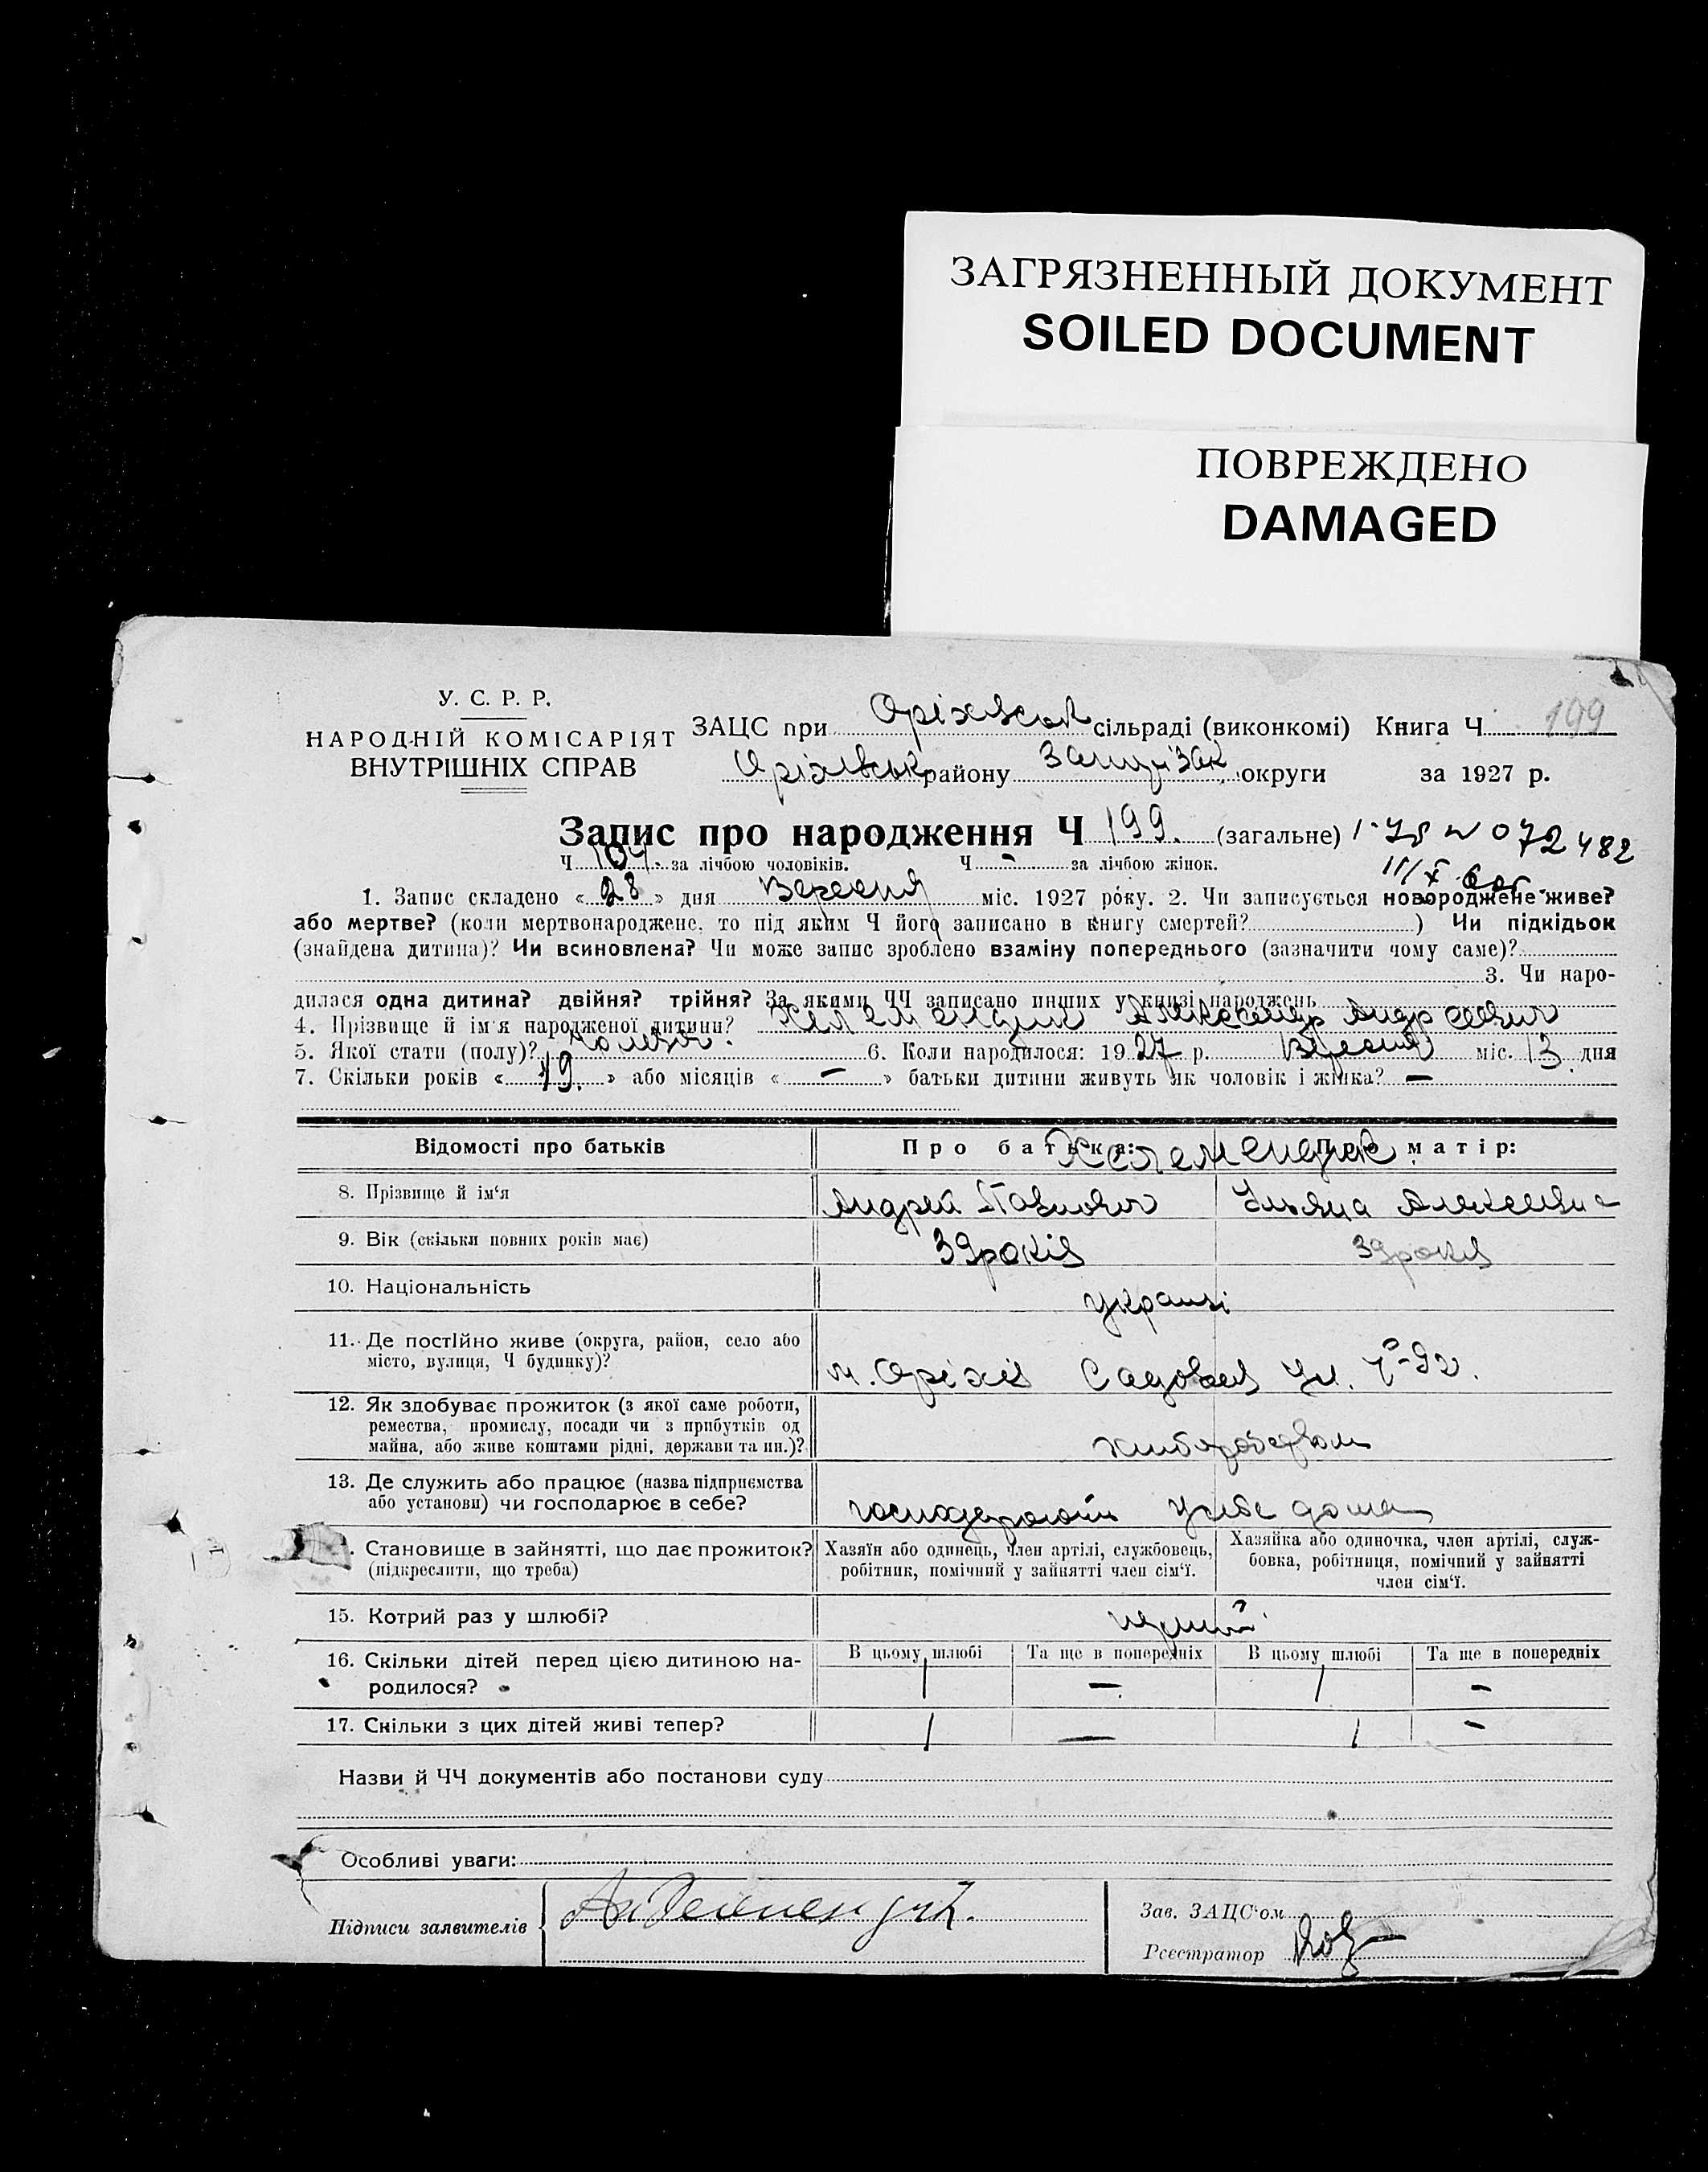 ЗАГРЯЗНЕННЫЙ ДОКУМЕНТ
SOILED DOCUMENT
ПОВРЕЖДЕНО
DAMAGED
У. С. Р. Р.
НАРОДНІЙ КОМІСАРІЯТ
ВНУТРІШНІХ СПРАВ
ЗАЦС при Оріхівськ сільраді (виконкомі) Книга Ч 199
Оріхівськ району Запорізьк округи за 1927 р.
Запис про народження Ч 199. (загальне)
Ч 104. за лічбою чоловіків. Ч - за лічбою жінок.
1. Запис складено « 28 » дня Вересня міс. 1927 року. 2. Чи записується новороджене живе?
або мертве? (коли мертвонароджене, то під яким Ч його записано в книгу смертей? ) Чи підкідьок
(знайдена дитина)? Чи всиновлена? Чи може запис зроблено взаміну попереднього (зазначити чому саме)?
3. Чи наро-
дилася одна дитина? двійня? трійня? За якими ЧЧ записано инших у книзі народжень
4. Прізвище й ім'я народженої дитини? Александр Андреевич
5. Якої стати (полу)? 6. Коли народилося: 1927 р. Вересня міс. 13 дня
7. Скільки років « 19. » або місяців « - » батьки дитини живуть як чоловік і жінка? -
Відомості про батьків Про батька: Про матір:
8. Прізвище й ім'я Андрей Павлович Ульяна Алексеевна
9. Вік (скільки повних років має) 39 років 39 років
10. Національність Украінці
11. Де постійно живе (округа, район, село або
місто, вулиця, Ч будинку)? м. Оріхів Садовая ул.
12. Як здобуває прожиток (з якої саме роботи,
ремества, промислу, посади чи з прибутків од
майна, або живе коштами рідні, держави та ин.)? хліборобством
13. Де служить або працює (назва підприємства
або установи) чи господарює в себе? господарюють у себе дома
. Становище в зайнятті, що дає прожиток?
(підкреслити, що треба)
Хазяїн або одинець, член артілі, службовець,
робітник, помічний у зайнятті член сім'ї.
Хазяйка або одиночка, член артілі, служ-
бовка, робітниця, помічний у зайнятті
член сім'ї.
15. Котрий раз у шлюбі? перший
16. Скільки дітей перед цією дитиною на-
родилося?
В цьому шлюбі Та ще в попередніх В цьому шлюбі Та ще в попередніх
1 - 1 -
17. Скільки з цих дітей живі тепер? 1 - 1 -
Назви й ЧЧ документів або постанови суду
Особливі уваги:
Підписи заявителів
Зав. ЗАЦС'ом
Реєстратор